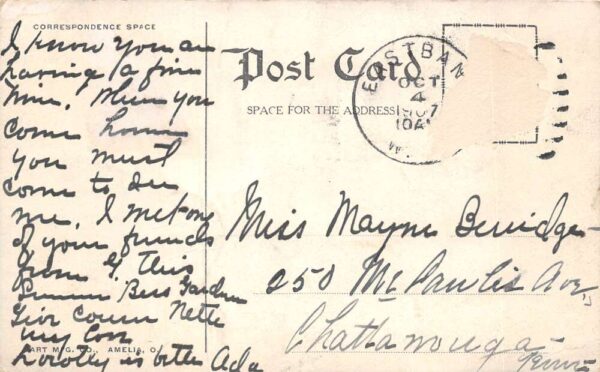 CORRESPONDENCE SPACE
I know you are
having a fine
time. When you
come home
you must
come to see
me. I met one
of your friends
from G. this
Summer Bess
Give Cousin Nette
my love
Dorothy is better Ada
ART M'F'G. CO., AMELIA, O.
Post Card
SPACE FOR THE ADDRESS
EASTBAN
OCT
4
1907
10A
W.
Miss Mayne Berridge
250 Mc Ave,
Chattanooga
Tenn